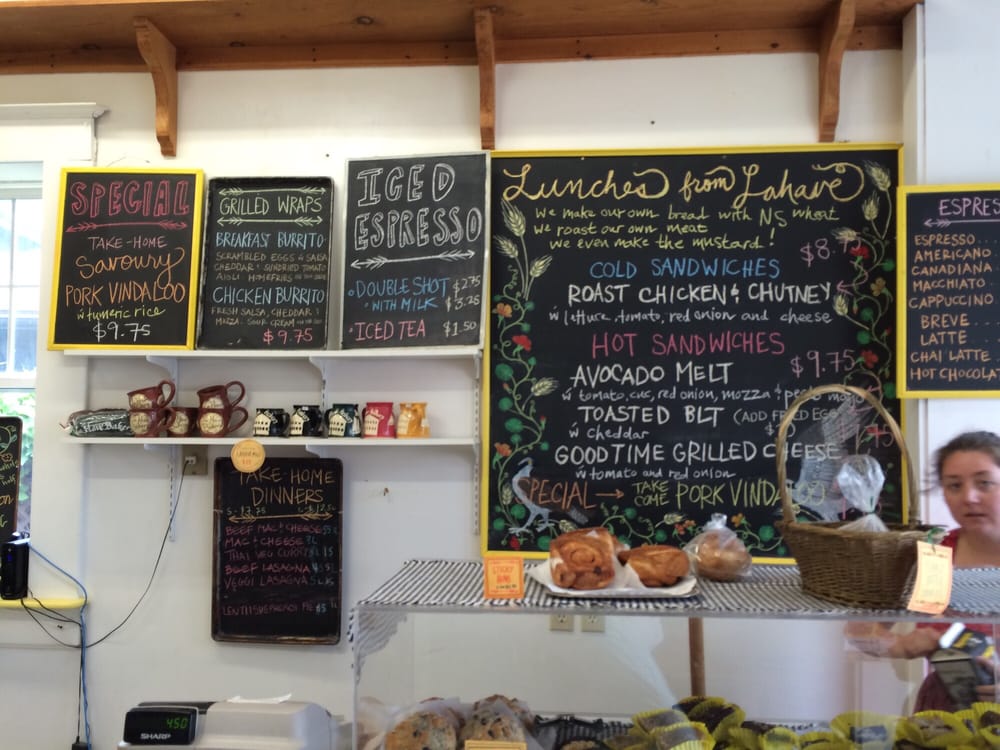 SPECIAL
TAKE-HOME
Savoury
PORK VINDALOO
w tumeric rice
$9.75
GRILLED WRAPS
BREAKFAST BURRITO
SCRAMBLED EGGS & SALSA
CHEDDAR SUNDRIED TOMATO
AIOLI HOMEFRIES
CHICKEN BURRITO
FRESH SALSA, CHEDDAR &
MOZZA, SOUR CREAM
$9.75
ICED
ESPRESSO
• DOUBLE SHOT $2.75
• WITH MILK $3.25
• ICED TEA $1.50
Lunches from Lahave
We make our own bread with NS wheat
We roast our own meat
We even make the mustard!
COLD SANDWICHES
ROAST CHICKEN & CHUTNEY
w lettuce, tomato, red onion and cheese
HOT SANDWICHES $9.75
AVOCADO MELT
w tomato, red onion, mozza &
TOASTED BLT (ADD FRIED EGG
w cheddar
GOODTIME GRILLED CHEESE
w tomato and red onion
SPECIAL → TAKE
PORK VINDALOO
ESPRES
ESPRESSO
AMERICANO
CANADIANA
MACCHIATO
CAPPUCCINO
BREVE
LATTE
CHAI LATTE
HOT CHOCOLAT
TAKE-HOME
DINNERS
BEEF MAC & CHEESE
MAC & CHEESE
THAI VEG CURRY
BEEF LASAGNA
VEGGI LASAGNA
STICKY
BUNS
450
SHARP